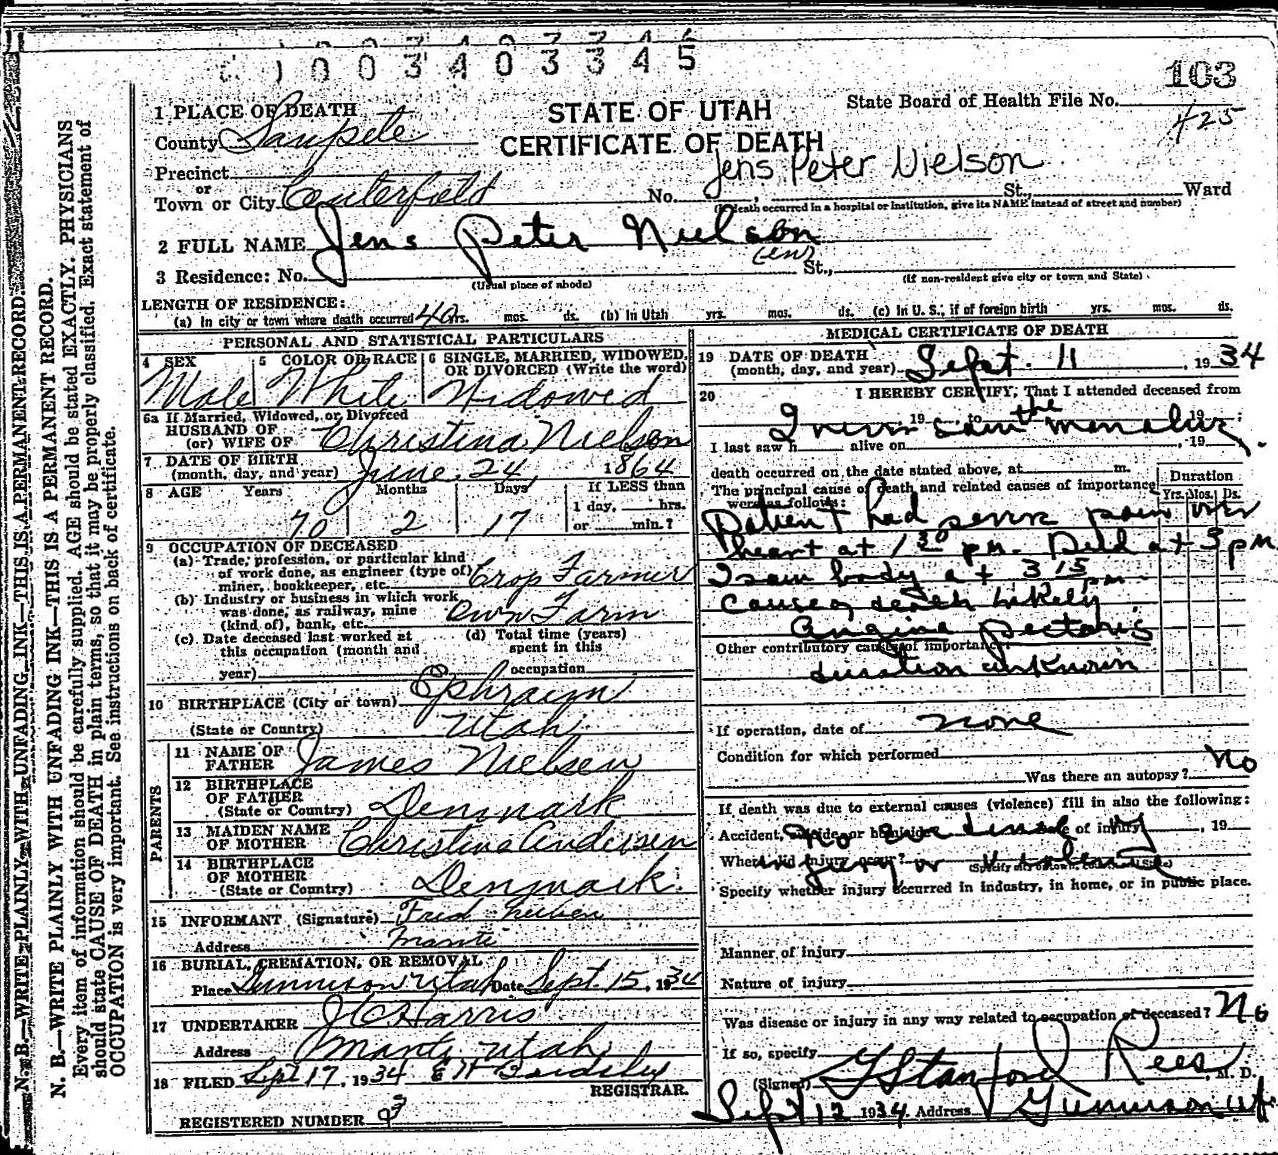 1 0 0 3 4 0 3 3 4 5
103
STATE OF UTAH
CERTIFICATE OF DEATH
State Board of Health File No.
425
1 PLACE OF DEATH
County Sanpete
Precinct
or
Town or City Centerfield No. Jens Peter Nielson St., Ward
(If death occurred in a hospital or institution, give its NAME instead of street and number)
2 FULL NAME Jens Peter Nielson
(en)
3 Residence: No. St.,
(Usual place of abode) (If non-resident give city or town and State)
LENGTH OF RESIDENCE:
(a) In city or town where death occurred 40 yrs. mos. ds. (b) In Utah yrs. mos. ds. (c) In U. S., if of foreign birth yrs. mos. ds.
PERSONAL AND STATISTICAL PARTICULARS
4 SEX 5 COLOR OR RACE 6 SINGLE, MARRIED, WIDOWED, OR DIVORCED (Write the word)
Male White Widowed
6a If Married, Widowed, or Divorced
HUSBAND OF
(or) WIFE OF Christina Nielson
7 DATE OF BIRTH
(month, day, and year) June 24 1864
8 AGE Years Months Days If LESS than
1 day, hrs.
70 2 17 or min.?
9 OCCUPATION OF DECEASED
(a) Trade, profession, or particular kind
of work done, as engineer (type of) Crop Farmer
miner, bookkeeper, etc.
(b) Industry or business in which work
was done, as railway, mine own Farm
(kind of), bank, etc.
(c) Date deceased last worked at (d) Total time (years)
this occupation (month and spent in this
year) occupation
10 BIRTHPLACE (City or town) Ephraim
(State or Country) Utah
PARENTS
11 NAME OF
FATHER James Nielsen
12 BIRTHPLACE
OF FATHER
(State or Country) Denmark
13 MAIDEN NAME
OF MOTHER Christina Andersen
14 BIRTHPLACE
OF MOTHER
(State or Country) Denmark
15 INFORMANT (Signature) Fred
Address Manti
16 BURIAL, CREMATION, OR REMOVAL
Place Gunnison Utah Date Sept. 15, 1934
17 UNDERTAKER J C Harris
Address Manti, Utah
18 FILED Sept 17, 1934 E H
REGISTRAR.
REGISTERED NUMBER
MEDICAL CERTIFICATE OF DEATH
19 DATE OF DEATH
(month, day, and year) Sept. 11, 1934
20 I HEREBY CERTIFY, That I attended deceased from
19 to 19 :
I never saw the man alive
I last saw h alive on , 19
death occurred on the date stated above, at m.
The principal cause of death and related causes of importance
were as follows:
Duration
Yrs. Mos. Ds.
Patient had severe pain over
heart at 1 30 pm. Died at 3 pm
I saw body at 3 15 pm.
Cause of death likely
angina pectoris
Other contributory causes of importance:
duration unknown
If operation, date of none
Condition for which performed
Was there an autopsy? No
If death was due to external causes (violence) fill in also the following:
Accident, suicide or homicide Date of injury , 19
No evidence of
Where did injury occur?
injury or violence
(Specify city or town, county and State)
Specify whether injury occurred in industry, in home, or in public place.
Manner of injury
Nature of injury
Was disease or injury in any way related to occupation of deceased? No
If so, specify
(Signed) G Stanford Rees, M. D.
Sept 12 1934 Address Gunnison Utah
N. B.—WRITE PLAINLY WITH UNFADING INK—THIS IS A PERMANENT RECORD.
N. B.—WRITE PLAINLY WITH UNFADING INK—THIS IS A PERMANENT RECORD.
Every item of information should be carefully supplied. AGE should be stated EXACTLY. PHYSICIANS
should state CAUSE OF DEATH in plain terms, so that it may be properly classified. Exact statement of
OCCUPATION is very important. See instructions on back of certificate.